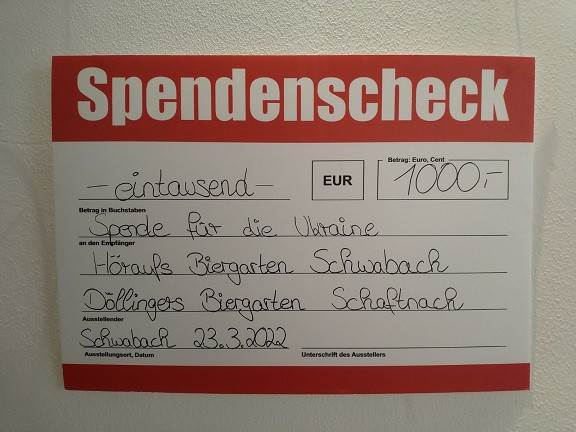 Spendenscheck
Betrag: Euro, Cent
-eintausend- EUR 1000,-
Betrag in Buchstaben
Spende für die Ukraine
an den Empfänger
Höraufs Biergarten Schwabach
Döllingers Biergarten Schaftnach
Aussteller
Schwabach 23.3.2022
Ausstellungsort, Datum Unterschrift des Ausstellers